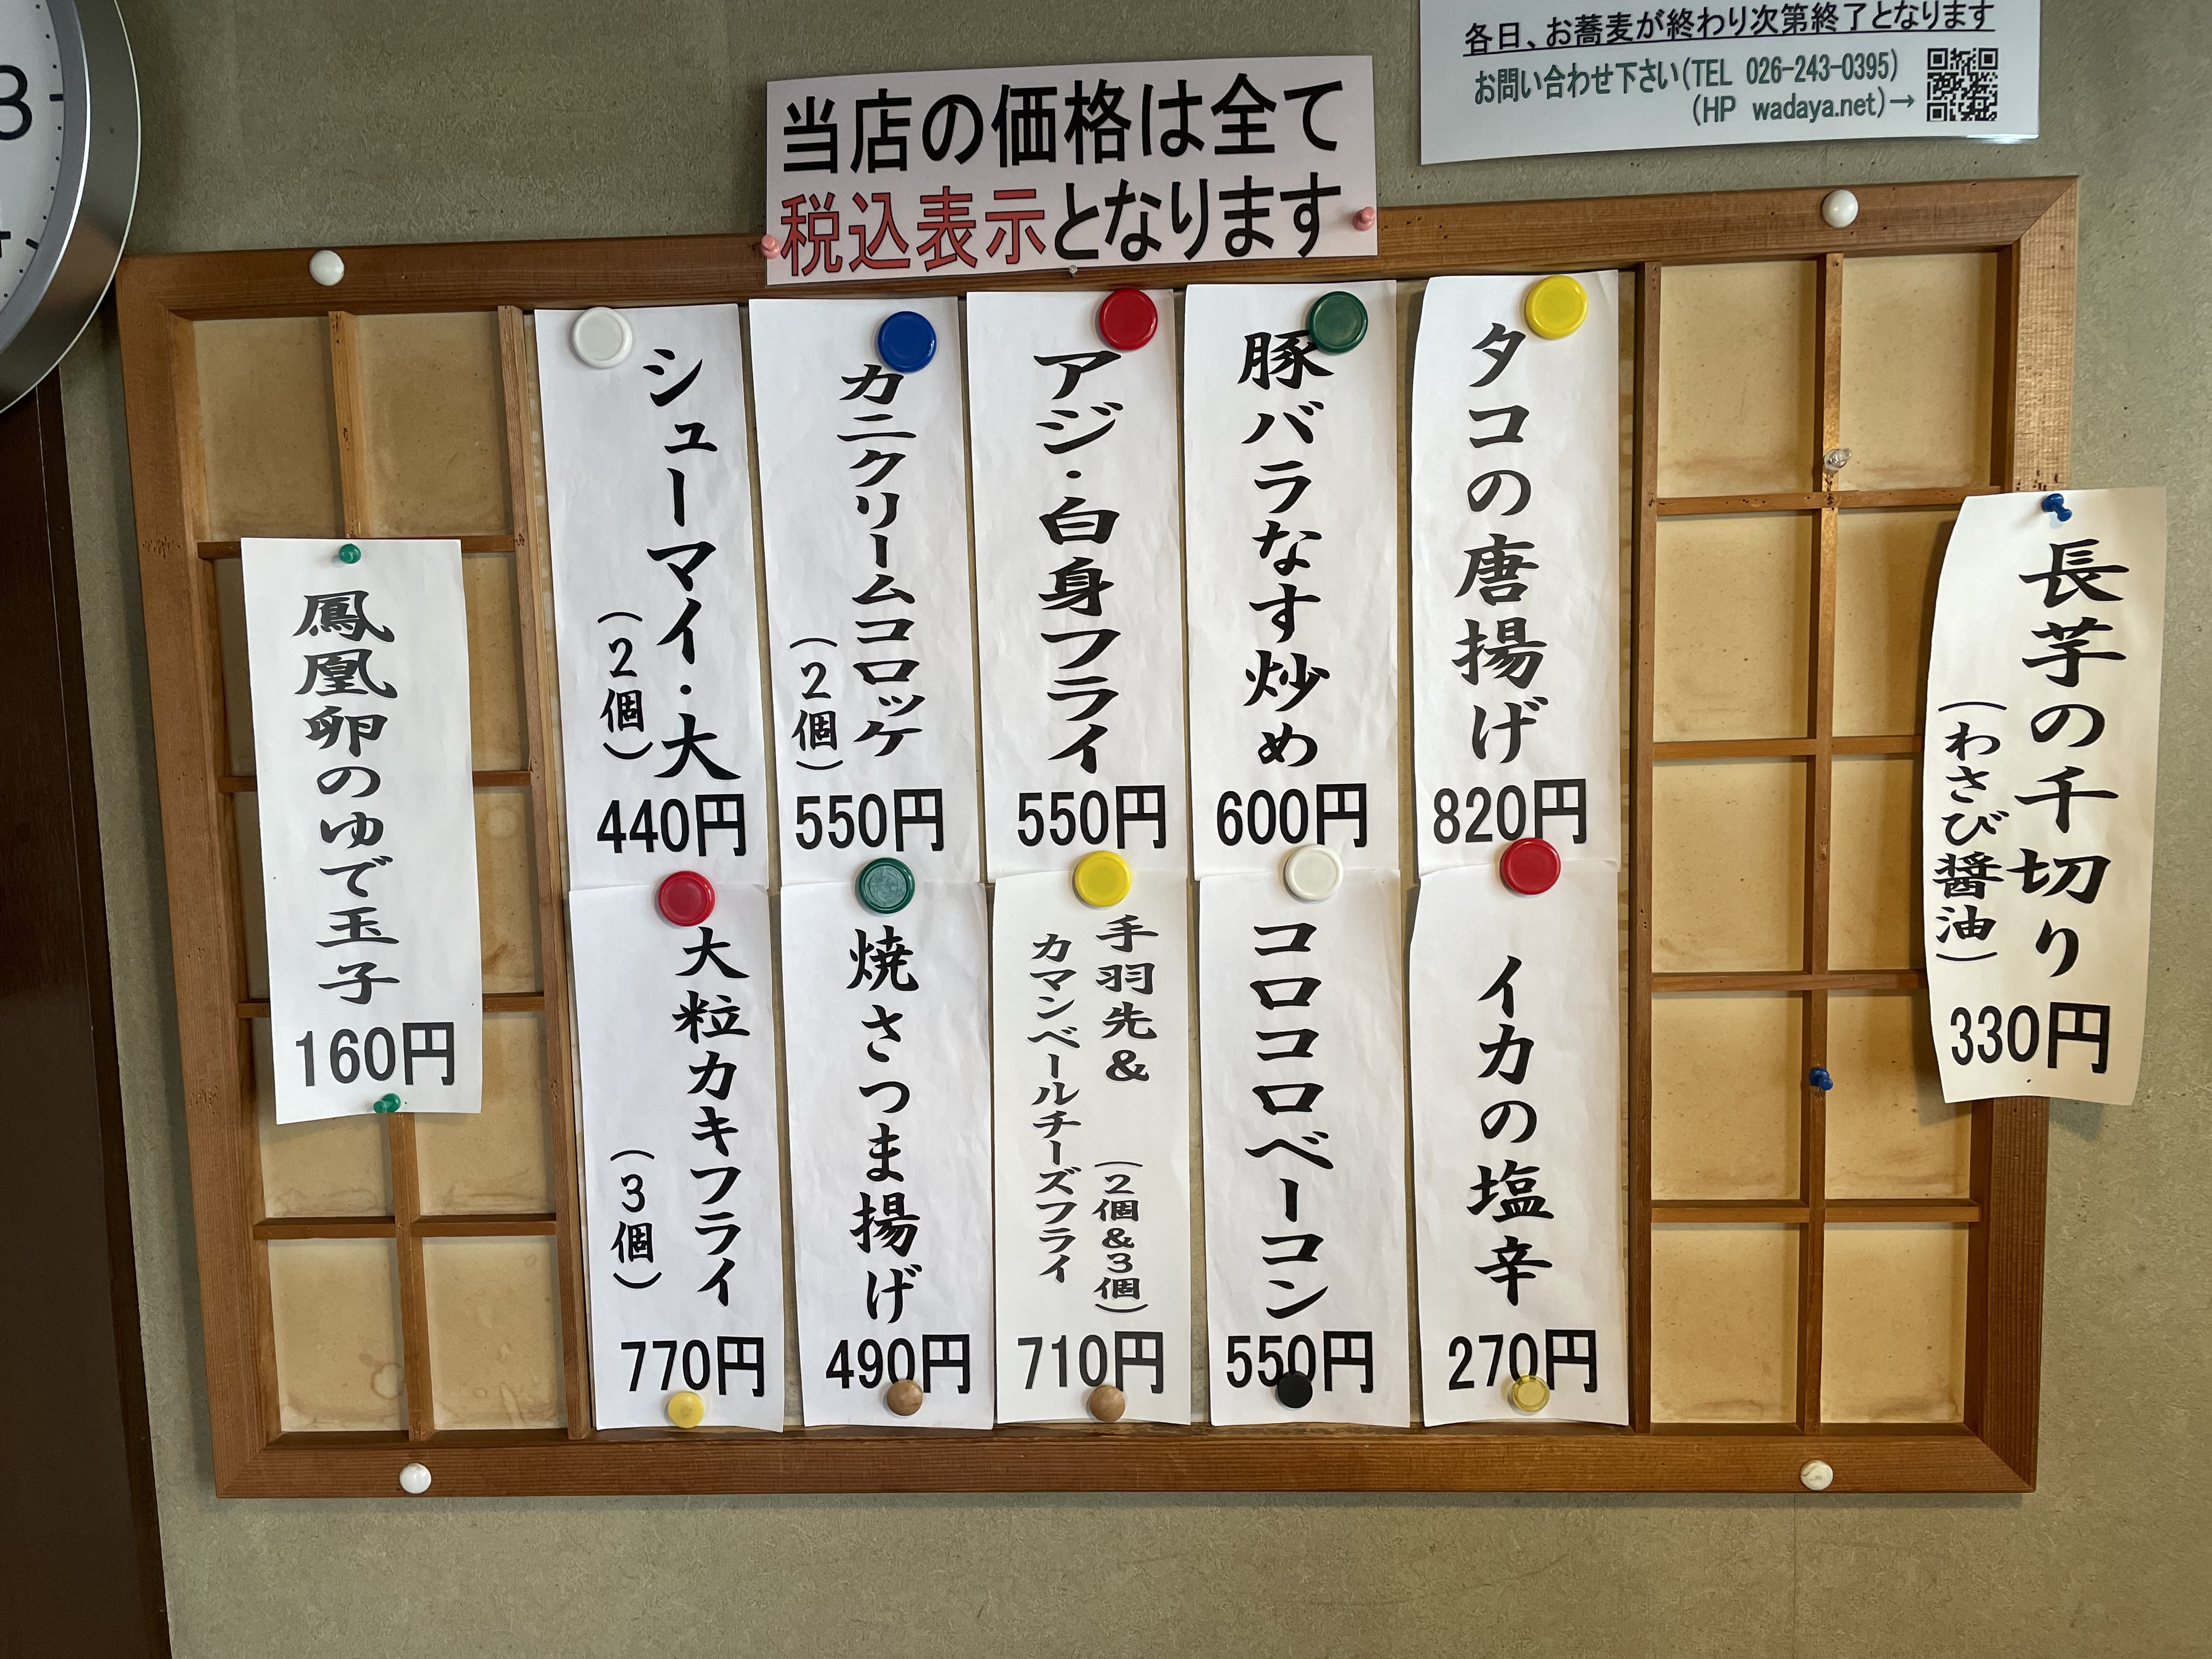 各日、お蕎麦が終わり次第終了となります
お問い合わせ下さい(TEL 026-243-0395)
(HP wadaya.net)→
当店の価格は全て
税込表示となります
長芋の千切り
(わさび醤油)
330円
タコの唐揚げ
820円
豚バラなす炒め
600円
アジ・白身フライ
550円
カニクリームコロッケ
(2個)
550円
シューマイ・大
(2個)
440円
イカの塩辛
270円
コロコロベーコン
550円
手羽先& (2個&3個)
カマンベールチーズフライ
710円
焼さつま揚げ
490円
大粒カキフライ
(3個)
770円
鳳凰卵のゆで玉子
160円
3